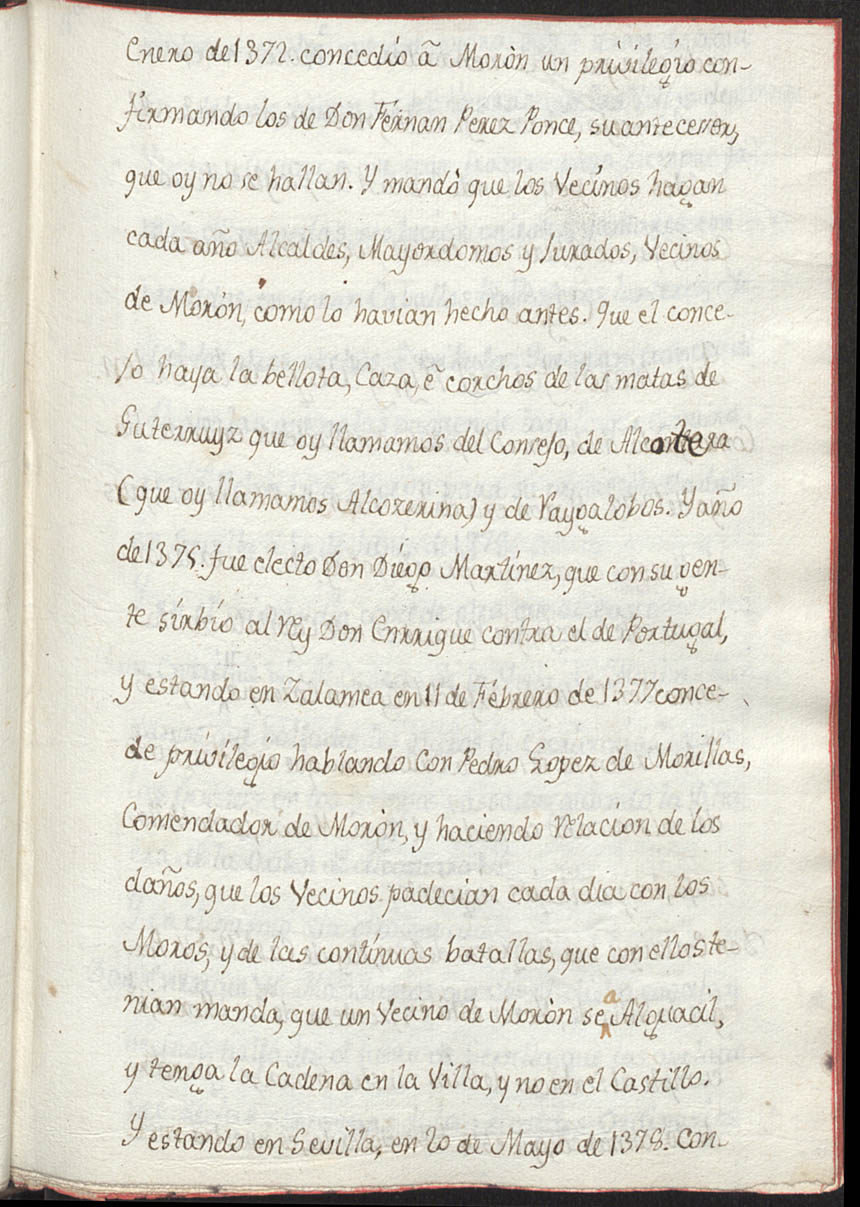 Enero de 1372. concedió ã Moròn un privilegio con-
firmando los de Don Fernan Perez Ponce, su antecessor,
que oy no se hallan. Y mandò que los Vecinos hagan
cada año Alcaldes, Mayordomos y Jurados, Vecinos
de Moròn, como lo havian hecho antes. Que el conce-
jo haya la bellota, Caza, ẽ corchos de las matas de
Guterruyz que oy llamamos del Consejo, de
(que oy llamamos Alcozerina) y de Vaygalobos. Y año
de 1375. fue electo Don Diego Martinez, que con su gen-
te sirbio al Rey Don Enrrique contra el de Portugal,
y estando en Zalamea en 11 de Febrero de 1377 conce-
de privilegio hablando con Pedro Lopez de Morillas,
Comendador de Moròn, y haciendo relacion de los
daños, que los Vecinos padecian cada dia con los
Moros, y de las continuas batallas, que con ellos te-
nian manda, que un Vecino de Moròn sea Alguacil,
y tenga la Cadena en la Villa, y no en el Castillo.
Y estando en Sevilla, en 10 de Mayo de 1378. con-